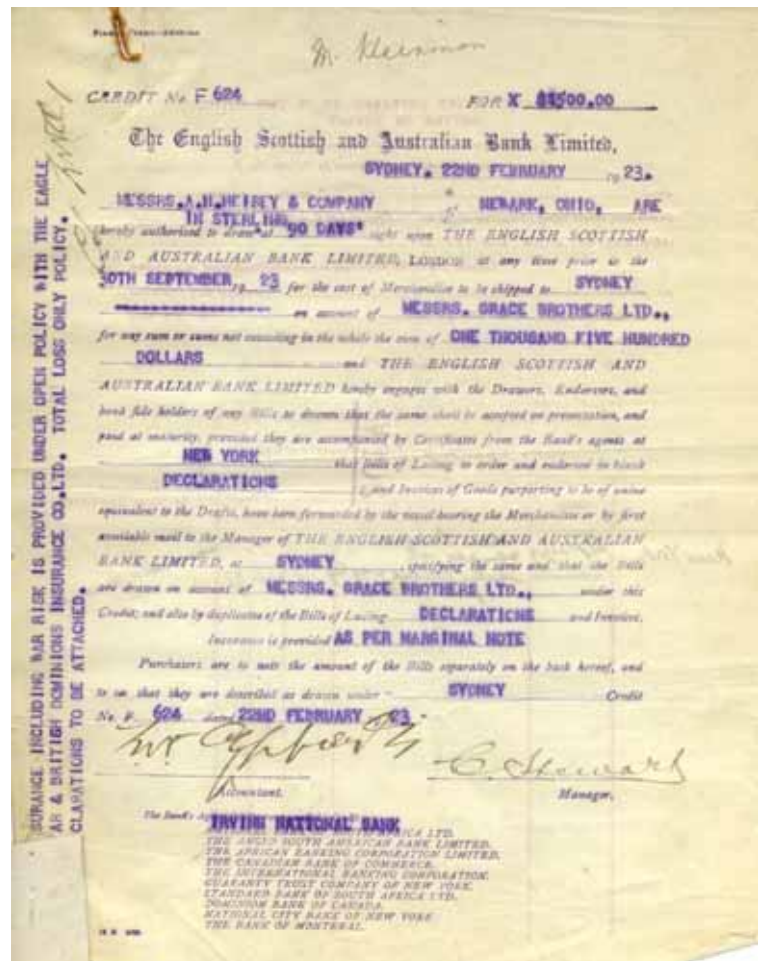 CREDIT No F 624 FOR X $1500.00
The English Scottish and Australian Bank Limited,
SYDNEY. 22ND FEBRUARY 1923.
MESSRS. A.H. HEISEY & COMPANY of NEWARK, OHIO, ARE
IN STERLING
hereby authorised to draw at "90 DAYS" sight upon THE ENGLISH SCOTTISH
AND AUSTRALIAN BANK LIMITED, LONDON at any time prior to the
30TH SEPTEMBER, 1923 for the cost of Merchandise to be shipped to SYDNEY
on account of MESSRS. GRACE BROTHERS LTD.,
for any sum or sums not exceeding in the whole the sum of ONE THOUSAND FIVE HUNDRED
DOLLARS and THE ENGLISH SCOTTISH AND
AUSTRALIAN BANK LIMITED hereby engages with the Drawers, Endorsers, and
bona fide holders of any Bills so drawn that the same shall be accepted on presentation, and
paid at maturity, provided they are accompanied by Certificates from the Bank's agents at
NEW YORK that Bills of Lading to order and endorsed in blank
DECLARATIONS and Invoices of Goods purporting to be of value
equivalent to the Drafts, have been forwarded by the vessel bearing the Merchandise or by first
available mail to the Manager of THE ENGLISH SCOTTISH AND AUSTRALIAN
BANK LIMITED, at SYDNEY, specifying the same and that the Bills
are drawn on account of MESSRS. GRACE BROTHERS LTD., under this
Credit; and also by duplicates of the Bills of Lading DECLARATIONS and Invoices.
Insurance is provided AS PER MARGINAL NOTE
Purchasers are to note the amount of the Bills separately on the back hereof, and
to see that they are described as drawn under " SYDNEY Credit
No. F. 624 dated 22ND FEBRUARY 23
C. Stewart
Accountant. Manager.
The Bank's
IRVING NATIONAL BANK
THE ANGLO SOUTH AMERICAN BANK LIMITED.
THE AFRICAN BANKING CORPORATION LIMITED.
THE CANADIAN BANK OF COMMERCE.
THE INTERNATIONAL BANKING CORPORATION.
GUARANTY TRUST COMPANY OF NEW YORK.
STANDARD BANK OF SOUTH AFRICA LTD.
DOMINION BANK OF CANADA.
NATIONAL CITY BANK OF NEW YORK.
THE BANK OF MONTREAL.
SURANCE INCLUDING WAR RISK IS PROVIDED UNDER OPEN POLICY WITH THE EAGLE
AR & BRITISH DOMINIONS INSURANCE CO.LTD. TOTAL LOSS ONLY POLICY.
CLARATIONS TO BE ATTACHED.